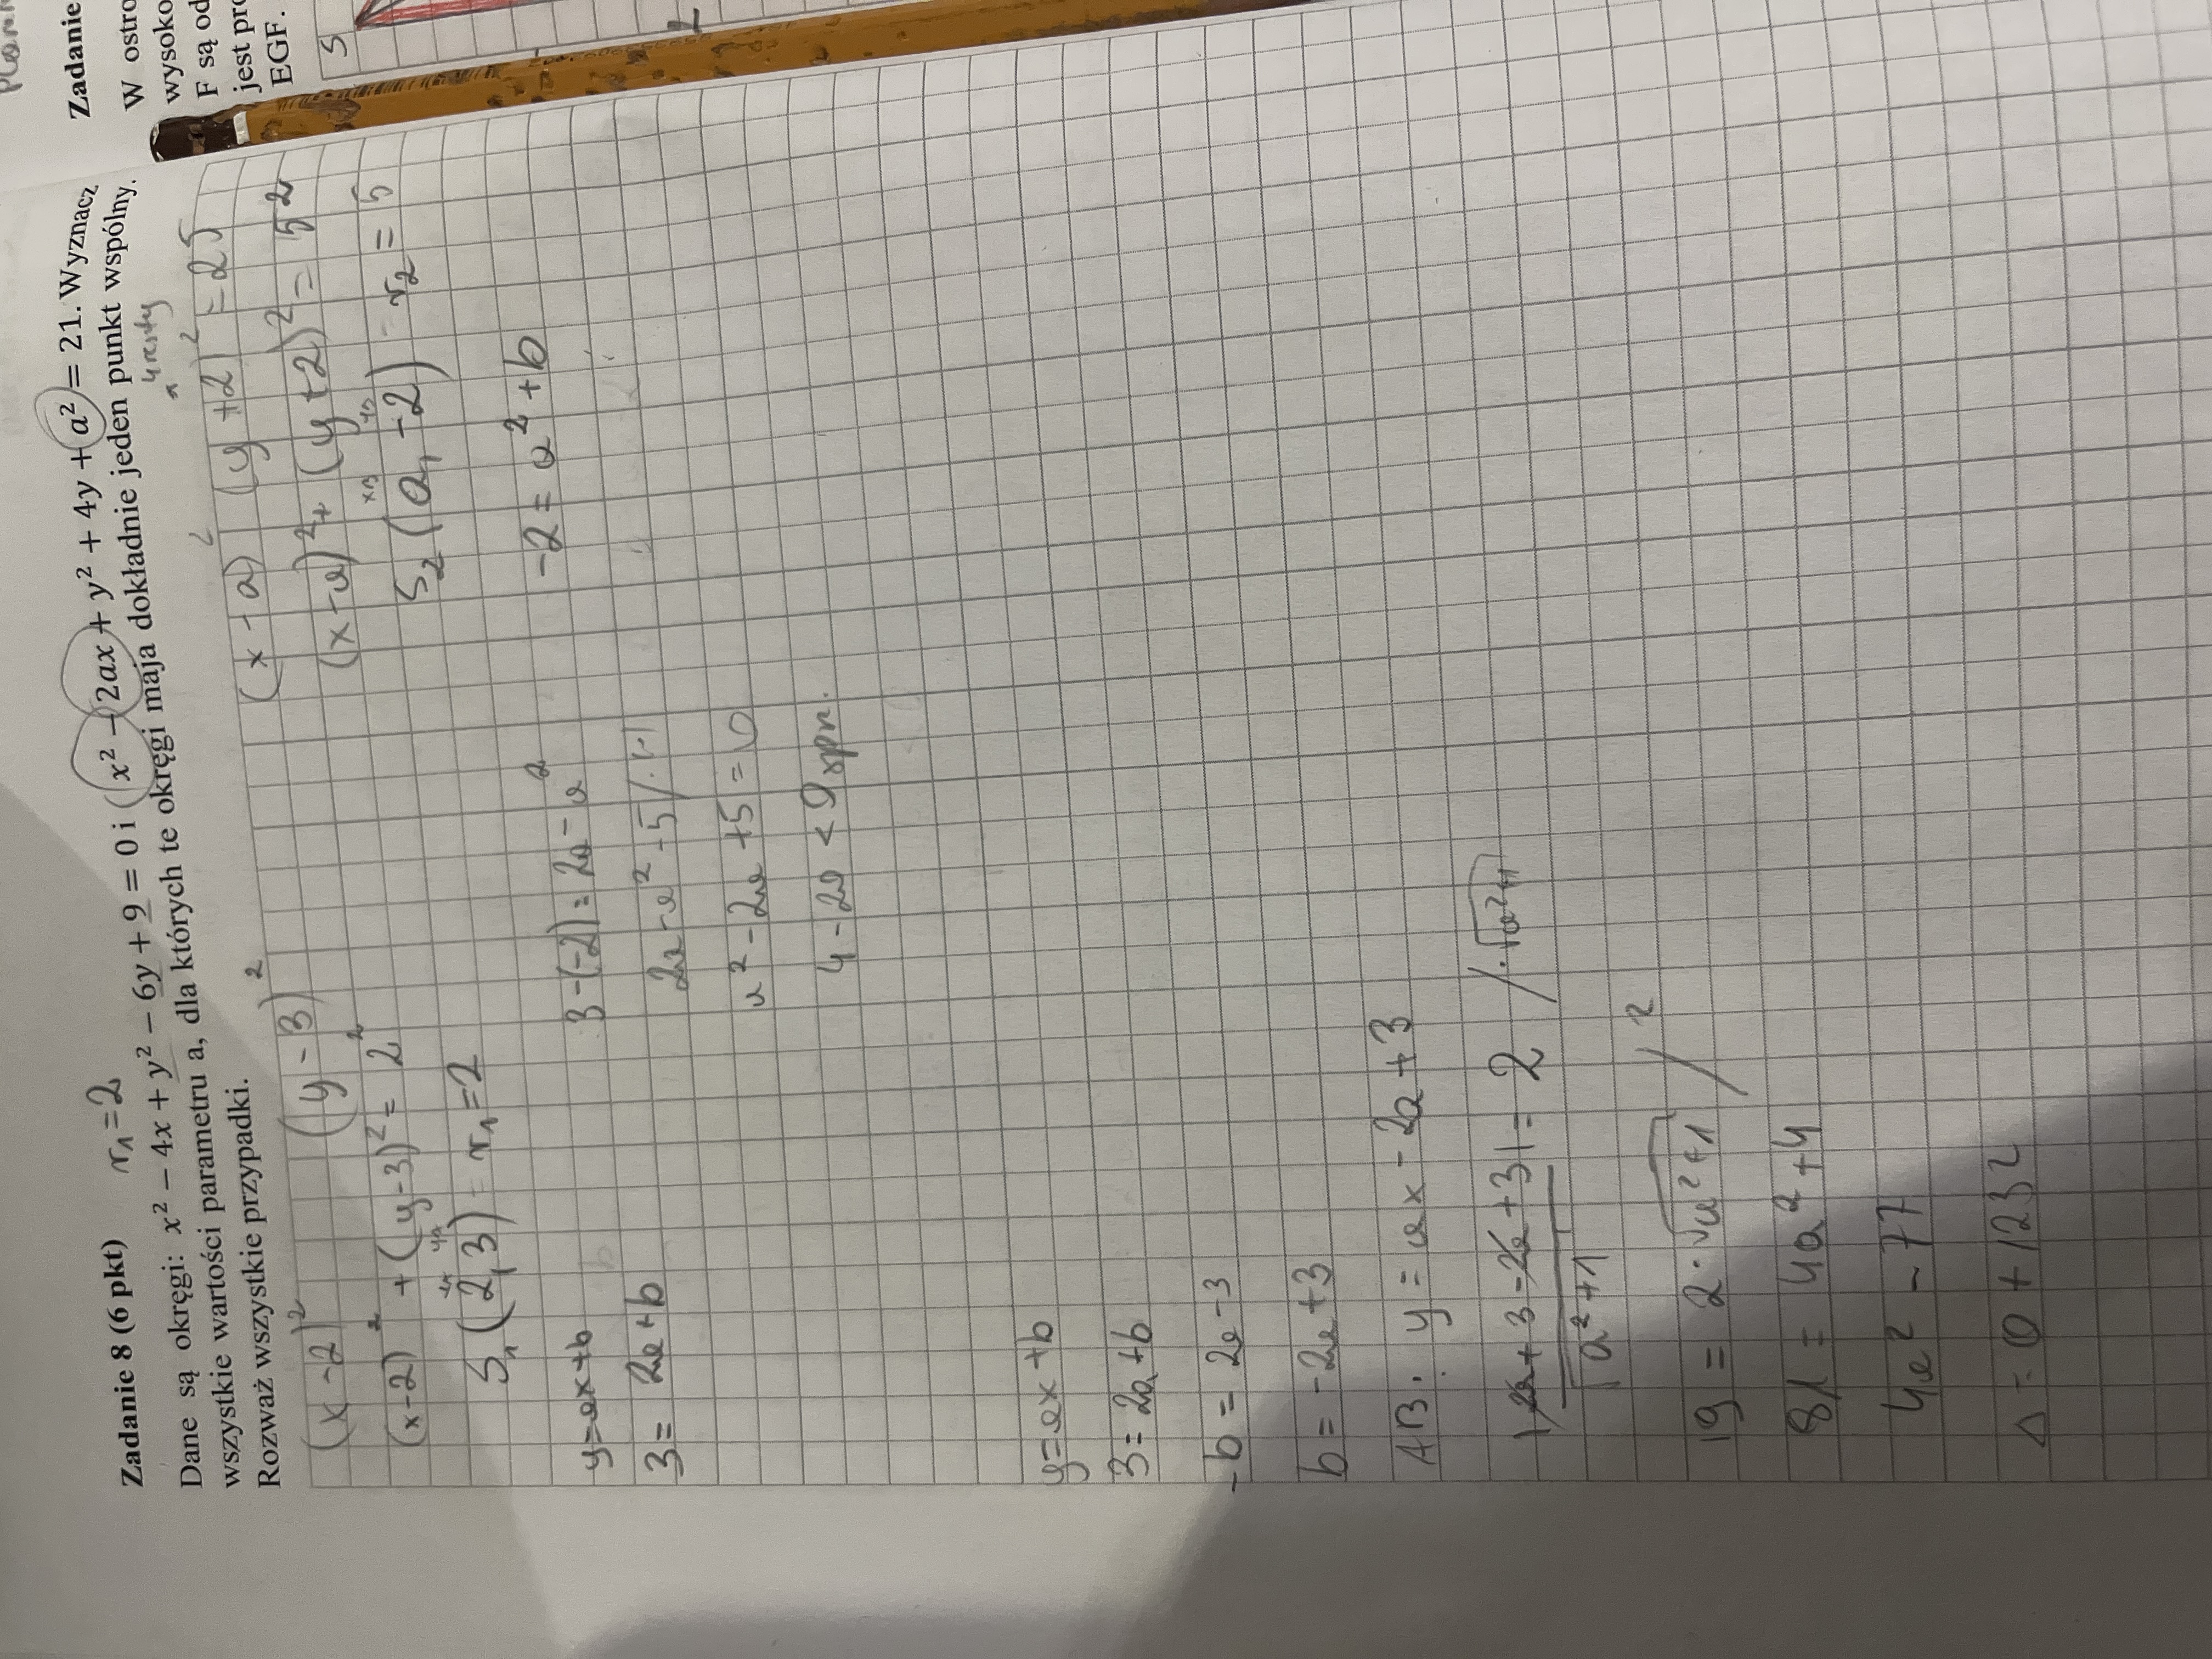 Zadanie 8 (6 pkt) r₁=2
Dane są okręgi: x² − 4x + y² − 6y + 9 = 0 i x² − 2ax + y² + 4y + a² = 21. Wyznacz
wszystkie wartości parametru a, dla których te okręgi maja dokładnie jeden punkt wspólny.
Rozważ wszystkie przypadki.
(x-2)² (y-3)²
(x-2)² + (y-3)² = 2²
S₁(2,3) r₁=2
y=ax+b
3= 2a+b
(x-a)² (y+2)² = 25
(x-a)² + (y+2)² = 5²
S₂(a,-2) r₂=5
-2= a²+b
3-(-2)=2a-a²
2a-a²-5 /·(-1)
a²-2a+5=0
4-20<0 spr.
y=ax+b
3=2a+b
-b=2a-3
b=-2a+3
AB: y=ax-2a+3
|2a+3-2a+3|=2 /·√a²+1
√a²+1
|9=2·√a²+1 /²
81=4a²+4
4a²-77
Δ=0+1232
Zadanie
W ostro
wysoko
F są od
jest pro
EGF.
S